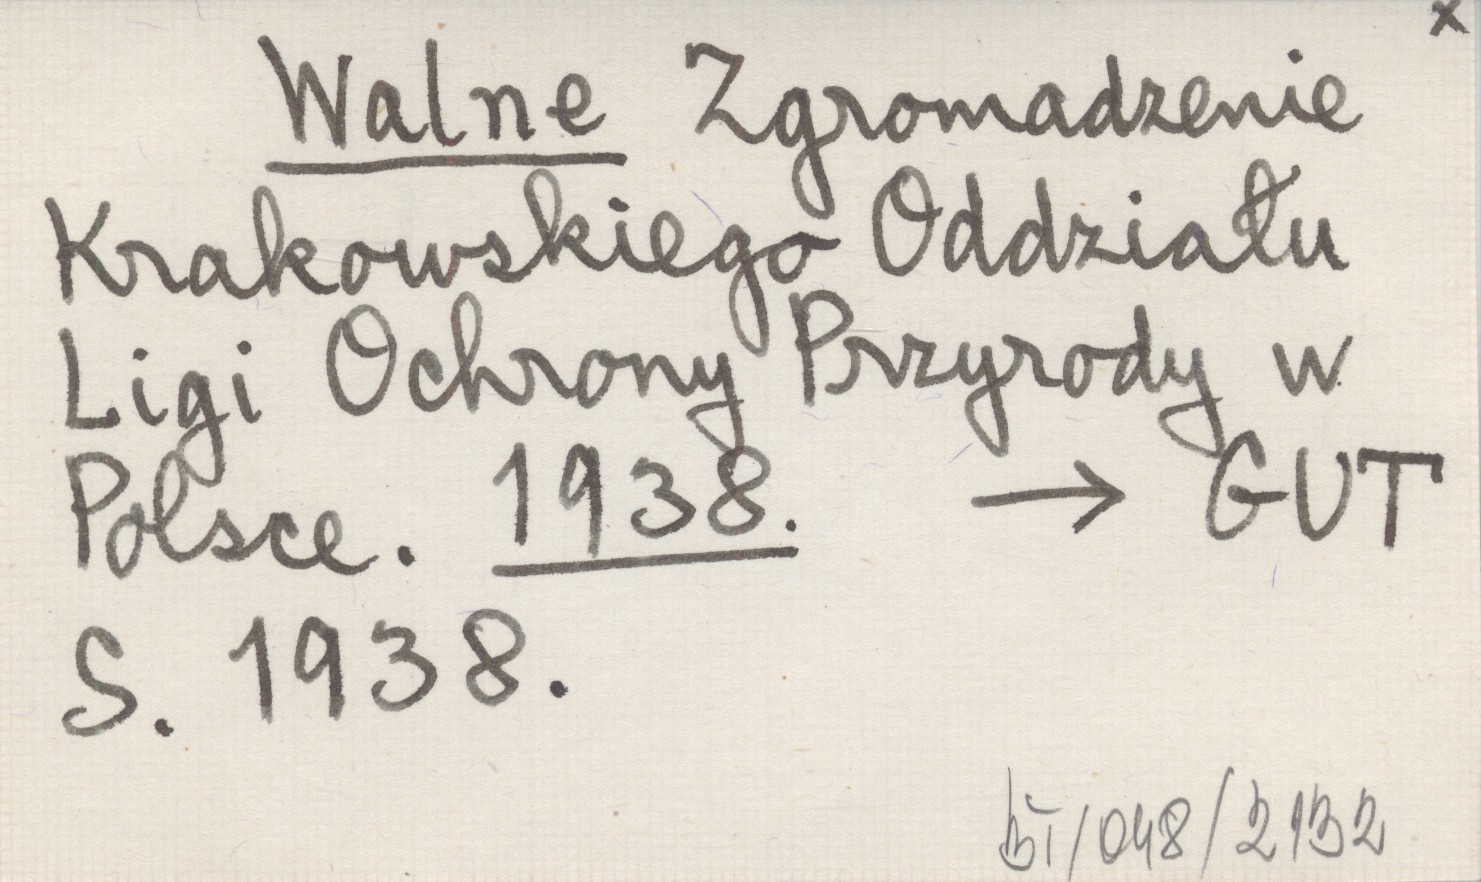 x
Walne Zgromadzenie
Krakowskiego Oddziału
Ligi Ochrony Przyrody w
Polsce. 1938. → GUT
S. 1938.
/048/2132